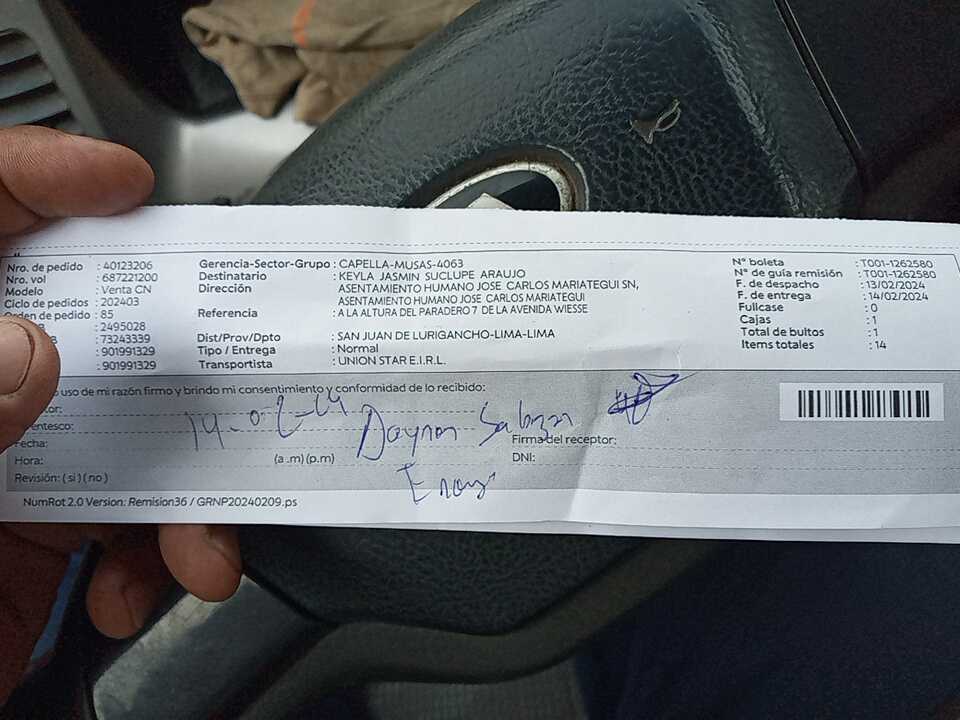 Nro. de pedido : 40123206
Nro. vol : 687221200
Modelo : Venta CN
Ciclo de pedidos : 202403
Orden de pedido : 85
: 2495028
: 73243339
: 901991329
: 901991329
Gerencia-Sector-Grupo : CAPELLA-MUSAS-4063
Destinatario : KEYLA JASMIN SUCLUPE ARAUJO
Dirección : ASENTAMIENTO HUMANO JOSE CARLOS MARIATEGUI SN,
ASENTAMIENTO HUMANO JOSE CARLOS MARIATEGUI
Referencia : A LA ALTURA DEL PARADERO 7 DE LA AVENIDA WIESSE
Dist/Prov/Dpto : SAN JUAN DE LURIGANCHO-LIMA-LIMA
Tipo / Entrega : Normal
Transportista : UNION STAR E.I.R.L.
N° boleta : T001-1262580
N° de guía remisión : T001-1262580
F. de despacho : 13/02/2024
F. de entrega : 14/02/2024
Fullcase : 0
Cajas : 1
Total de bultos : 1
Items totales : 14
uso de mi razón firmo y brindo mi consentimiento y conformidad de lo recibido:
tor:
entesco:
Fecha:
Hora: (a .m) (p.m)
Revisión: ( si ) ( no )
14-02-24
Firma del receptor:
DNI:
NumRot 2.0 Version: Remision36 / GRNP20240209.ps